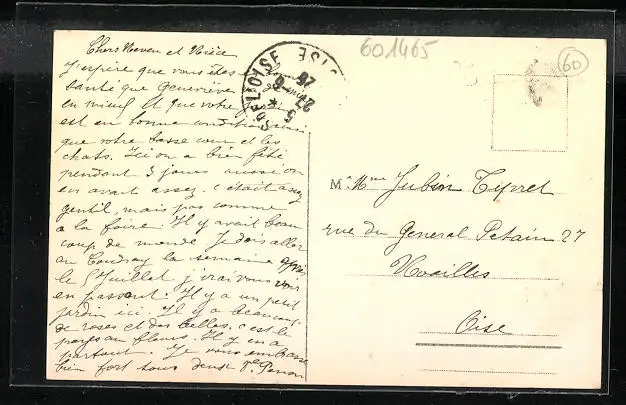 601465
60
Chers Neveu et Nièce
J'espère que vous êtes
santé que Geneviève
en mieux et que votre
est en bonne condition ainsi
que votre basse cour et les
chats. Ici on a bien fêté
pendant 3 jours aussi on
en avait assez. c'était assez
gentil, mais pas comme
a la foire. Il y avait beau
coup de monde. Je dois aller
au Coudray la semaine après
le 5 Juillet j'irai vous voir
en passant. Il y a un petit
jardin ici. Il y a beaucoup
de roses et des belles. c'est le
pays au fleurs. Il y en a
partout. Je vous embrasse
bien fort tous deux
S DE L'OISE
27
M
rue du General Petain 27
Noailles
Oise